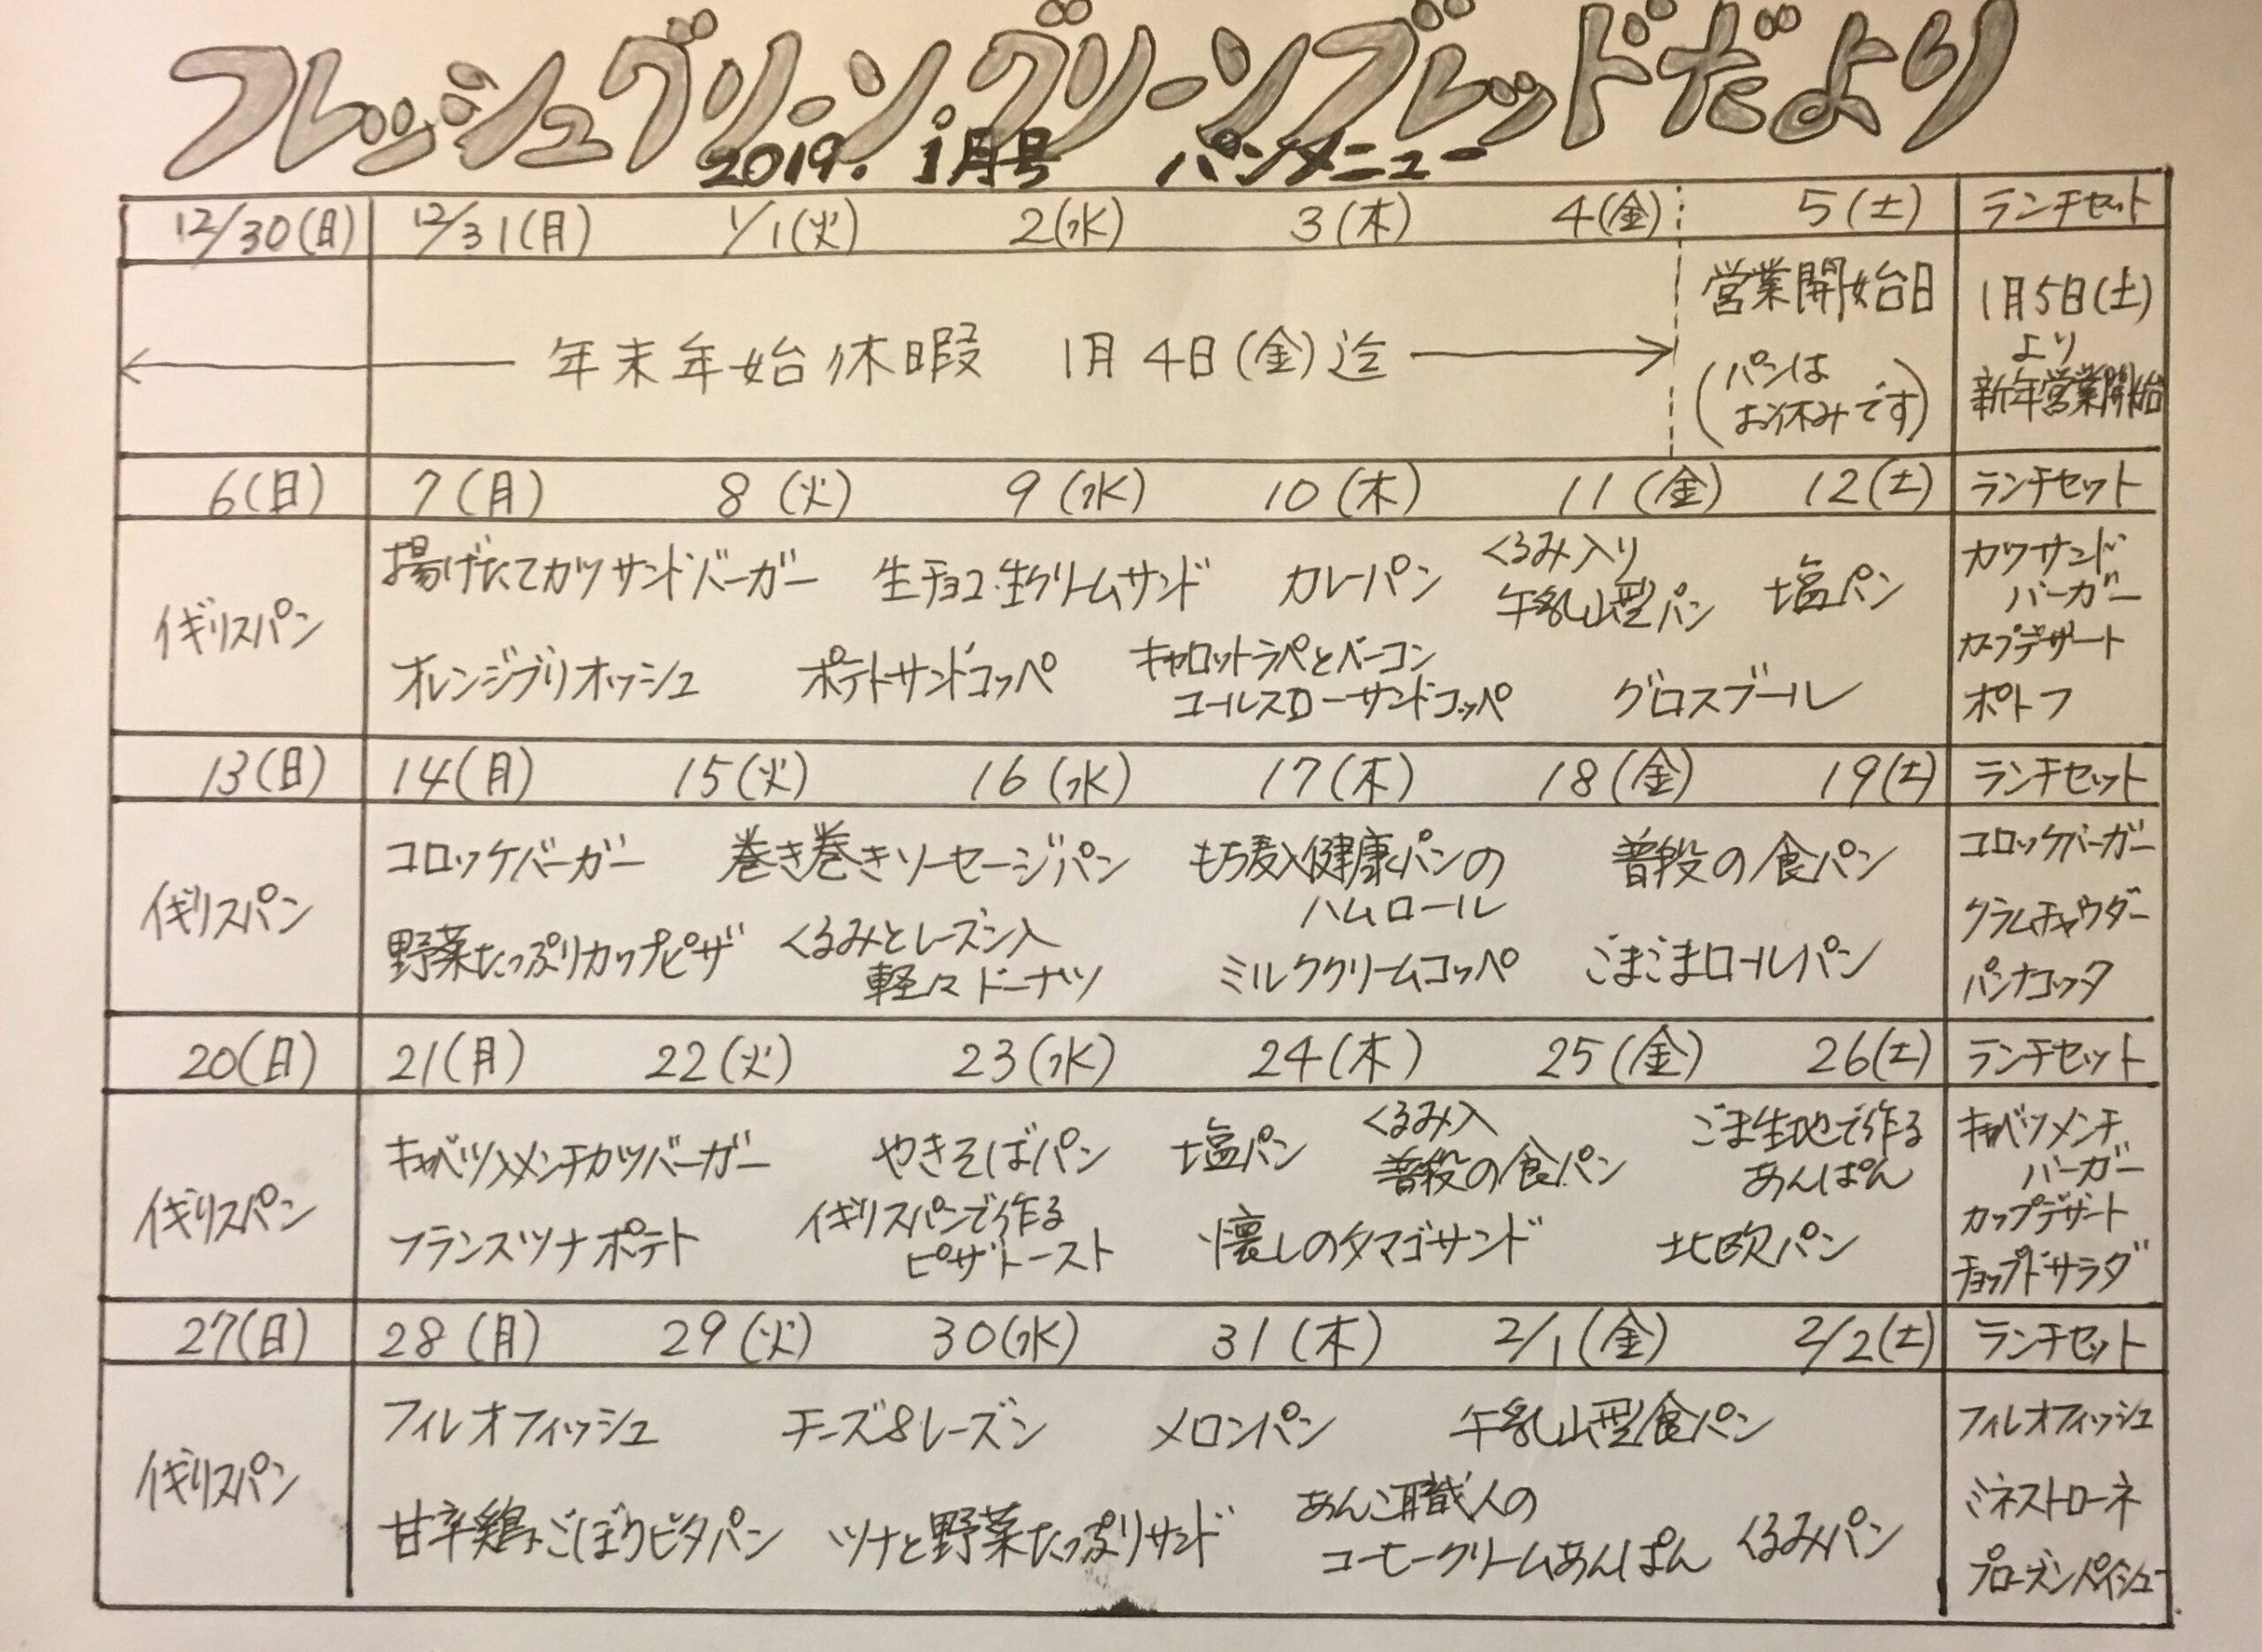 フレッシュグリーン・グリーンブレッドだより
2019. 1月号 パンメニュー
12/30(日) 12/31(月) 1/1(火) 2(水) 3(木) 4(金) 5(土) ランチセット
年末年始休暇 1月4日(金)迄
営業開始日
(パンは
お休みです)
1月5日(土)
より
新年営業開始
6(日) 7(月) 8(火) 9(水) 10(木) 11(金) 12(土) ランチセット
イギリスパン
揚げたてカツサンドバーガー 生チョコ・生クリームサンド カレーパン
くるみ入り
牛乳山型パン
塩パン
オレンジブリオッシュ ポテトサンドコッペ
キャロットラペとベーコン
コールスローサンドコッペ
グロスブール
カツサンド
バーガー
カップデザート
ポトフ
13(日) 14(月) 15(火) 16(水) 17(木) 18(金) 19(土) ランチセット
イギリスパン
コロッケバーガー 巻き巻きソーセージパン
もち麦入健康パンの
ハムロール
普段の食パン
野菜たっぷりカップピザ
くるみとレーズン入
軽々ドーナツ
ミルククリームコッペ ごまごまロールパン
コロッケバーガー
クラムチャウダー
パンナコッタ
20(日) 21(月) 22(火) 23(水) 24(木) 25(金) 26(土) ランチセット
イギリスパン
キャベツ入メンチカツバーガー やきそばパン 塩パン
くるみ入
普段の食パン
ごま生地で作る
あんぱん
フランスツナポテト
イギリスパンで作る
ピザトースト
懐しのタマゴサンド 北欧パン
キャベツメンチ
バーガー
カップデザート
チョップドサラダ
27(日) 28(月) 29(火) 30(水) 31(木) 2/1(金) 2/2(土) ランチセット
イギリスパン
フィレオフィッシュ チーズ&レーズン メロンパン 牛乳山型食パン
甘辛鶏ごぼうピタパン ツナと野菜たっぷりサンド
あんこ職人の
コーヒークリームあんぱん
くるみパン
フィレオフィッシュ
ミネストローネ
フローズンパイシュー